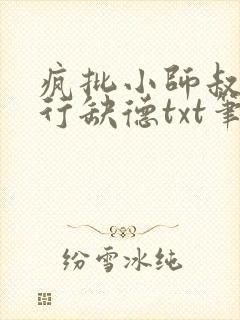 疯批小師叔
行缺德txt筆
纷雪冰纯